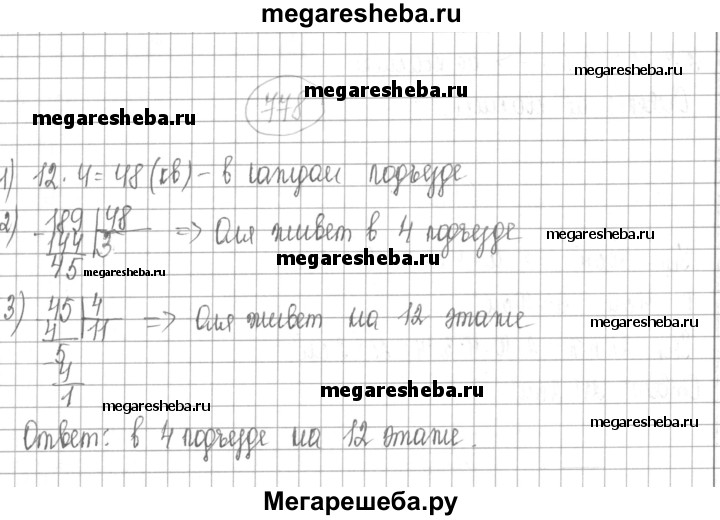 megaresheba.ru
megaresheba.ru
megaresheba.ru
778
megaresheba.ru
1) 12 · 4 = 48 (кв) – в каждом подъезде
2) – 189 | 48 => Оля живет в 4 подъезде
144 | 3
megaresheba.ru
megaresheba.ru
45 megaresheba.ru
3) 45 | 4 => Оля живет на 12 этаже
4 | 11
megaresheba.ru
5
4
megaresheba.ru
1
megaresheba.ru
megaresheba.ru
Ответ: в 4 подъезде на 12 этаже.
Мегарешеба.ру